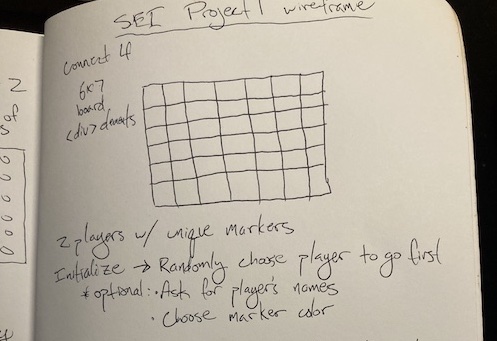 SEI Project 1 wireframe
connect 4
6x7
board
<div> elements
2 players w/ unique markers
Initialize → Randomly choose player to go first
* optional: · Ask for player's names
· Choose marker color
2
of